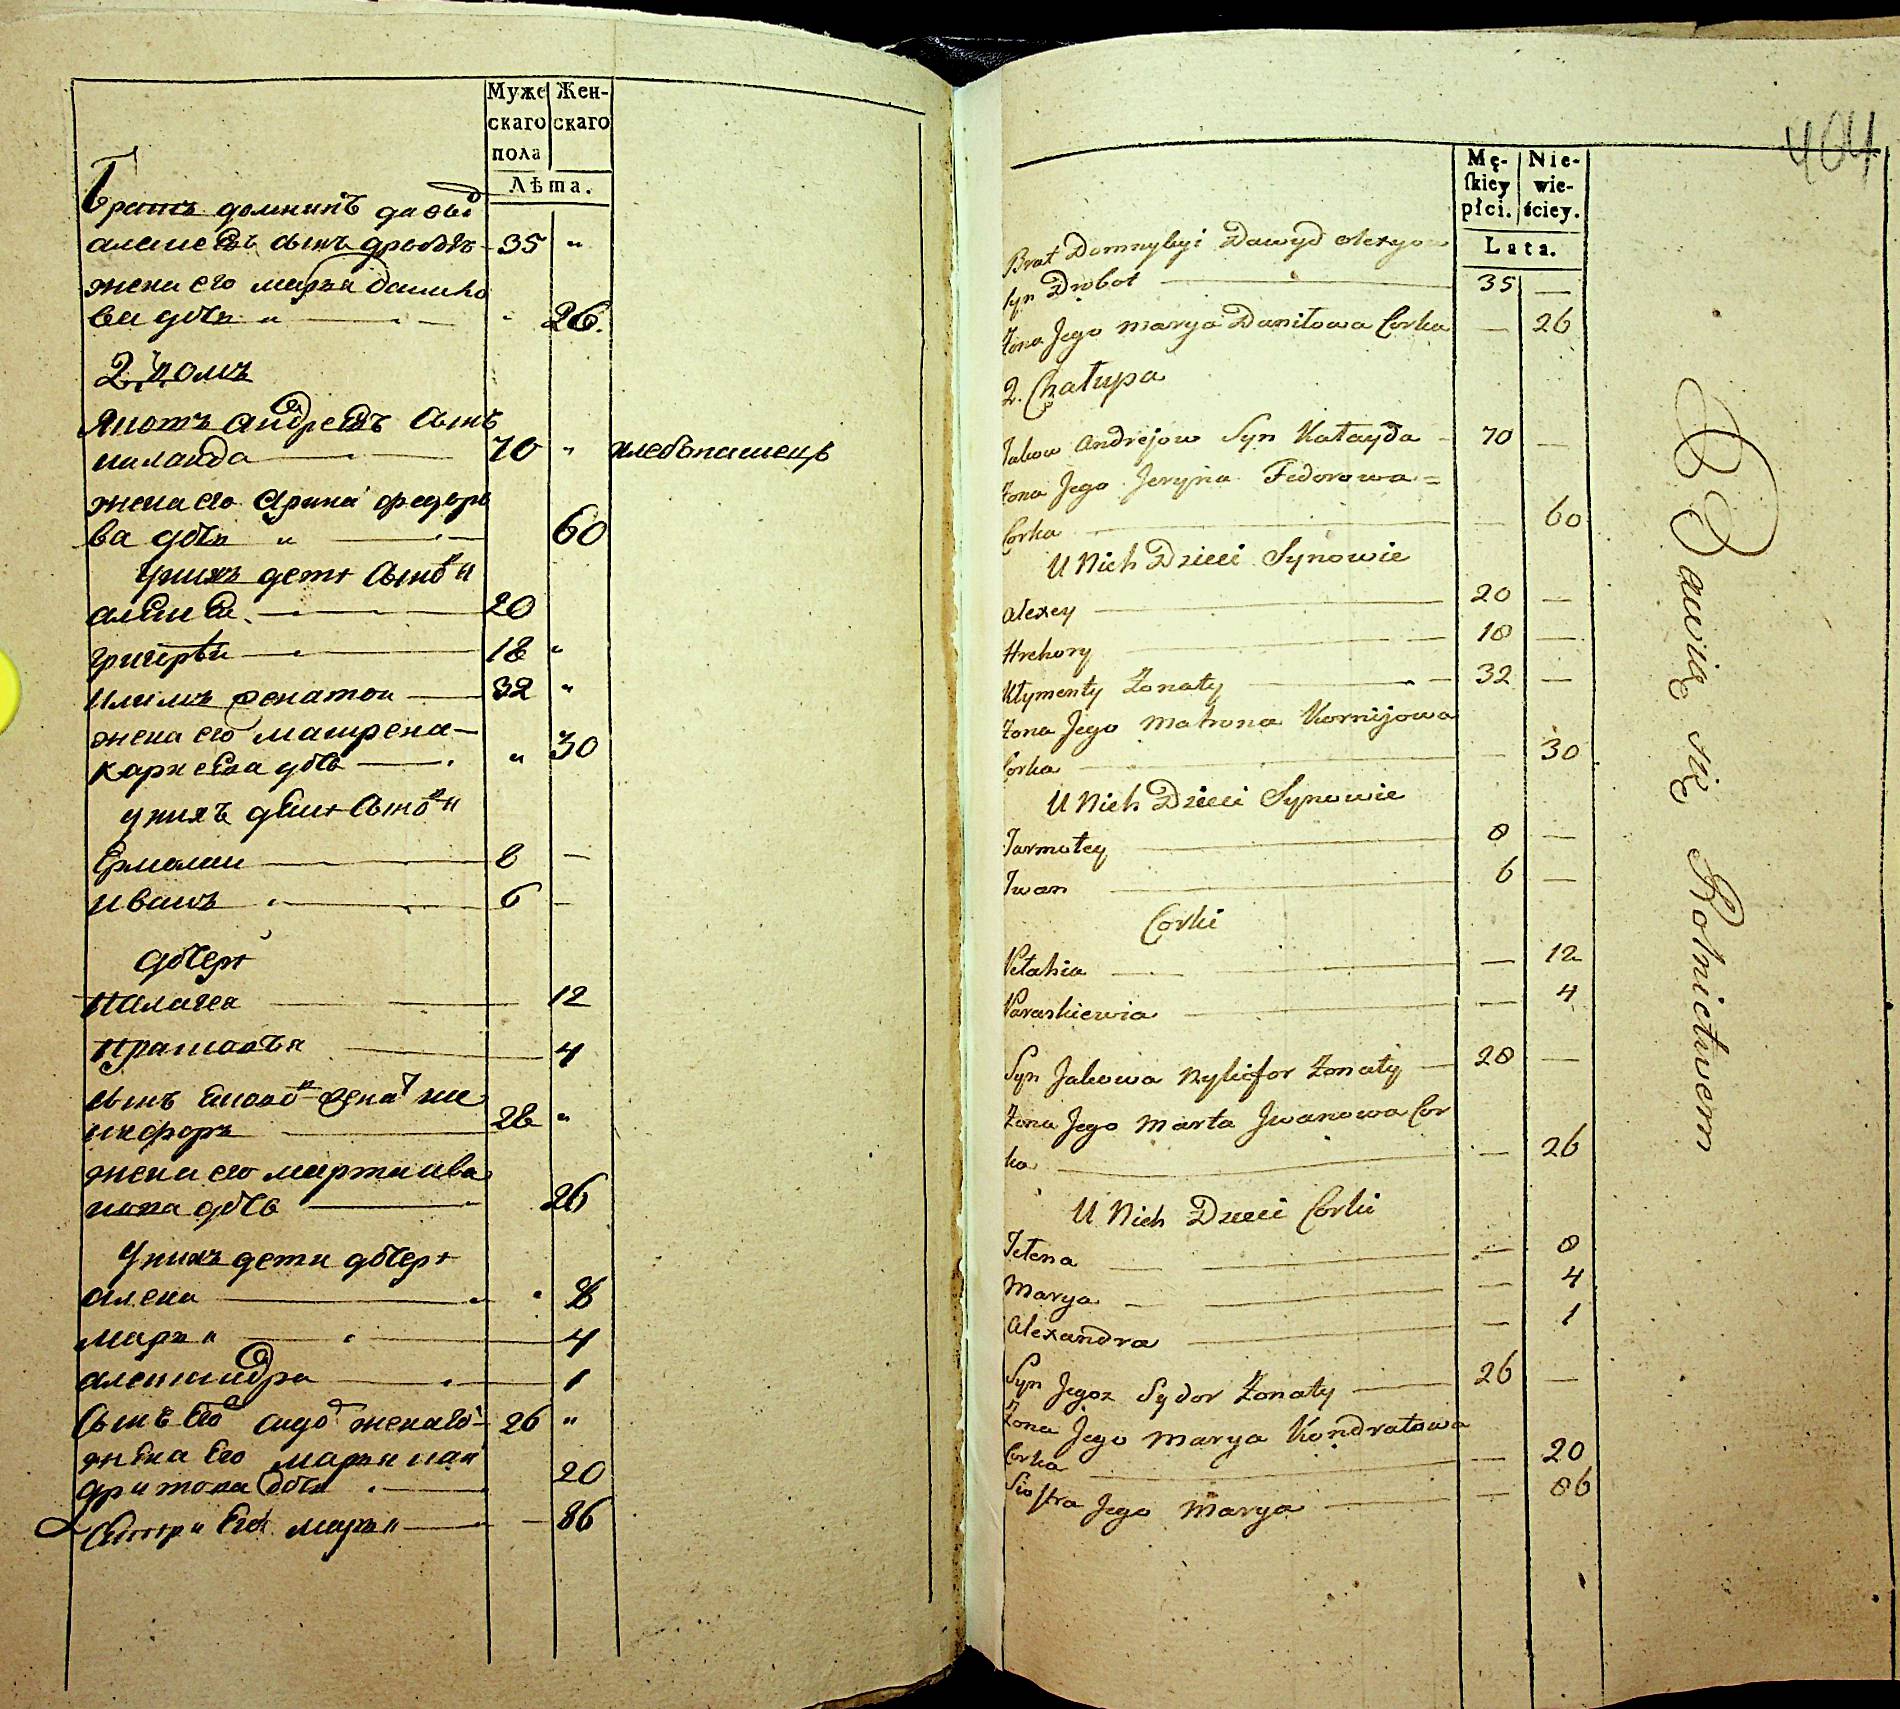 Муже Жен-
скаго скаго
пола
Лѣта.
братъ домникъ давыд
алексеевъ сынъ дроботъ 35 "
жена его марья данило
ва дочь " 26.
2. домъ
Яковъ андреевъ сынъ
калайда 70 " хлебопашецъ
жена его Арина федоро
ва дочь " 60
у нихъ дети сыновя
алексей 20
григорѣй 18 "
климъ женатои 32 "
жена его матрена
карнеева дочь " 30
у нихъ дети сыновя
Ермолаи 8 —
иванъ 6 —
дочери
палагея 12
прасковья 4
сынъ яковов женат ни
кифоръ 28 "
жена его марта ива
нова дочь 26
у нихъ дети дочери
алена 8
марья 4
александра 1
сынъ его сидор женатой 26 "
жена его марья кон
дратова дочь 20
сестра его марья 86
404
Mę- Nie-
ſkiey wie-
płci. ściey.
Lata.
Brat Domnykyi Dawyd Alexyow
syn Drobot 35 —
Żona Jego Marya Daniłowa Corka — 26
2. Chałupa
Jakow Andrejow Syn Kałayda 70 —
Żona Jego Jeryna Fedorowa =
Corka — 60
U Nich Dzieci Synowie
Alexey 20 —
Hrehory 18 —
Kłymenty Żonaty 32 —
Żona Jego Matrona Kornijowa
Corka — 30
U Nich Dzieci Synowie
Jarmołey 8 —
Iwan 6 —
Corki
Pełahia — 12
Paraskiewia — 4
Syn Jakowa Nykifor Żonaty 28 —
Żona Jego Marta Jwanowa Cor
ka — 26
U Nich Dzieci Corki
Jełena — 8
Marya — 4
Alexandra — 1
Syn Jegoż Sydor Żonaty 26 —
Żona Jego Marya Kondratowa
Corka — 20
Siostra Jego Marya — 86
Bawią się Rolnictwem